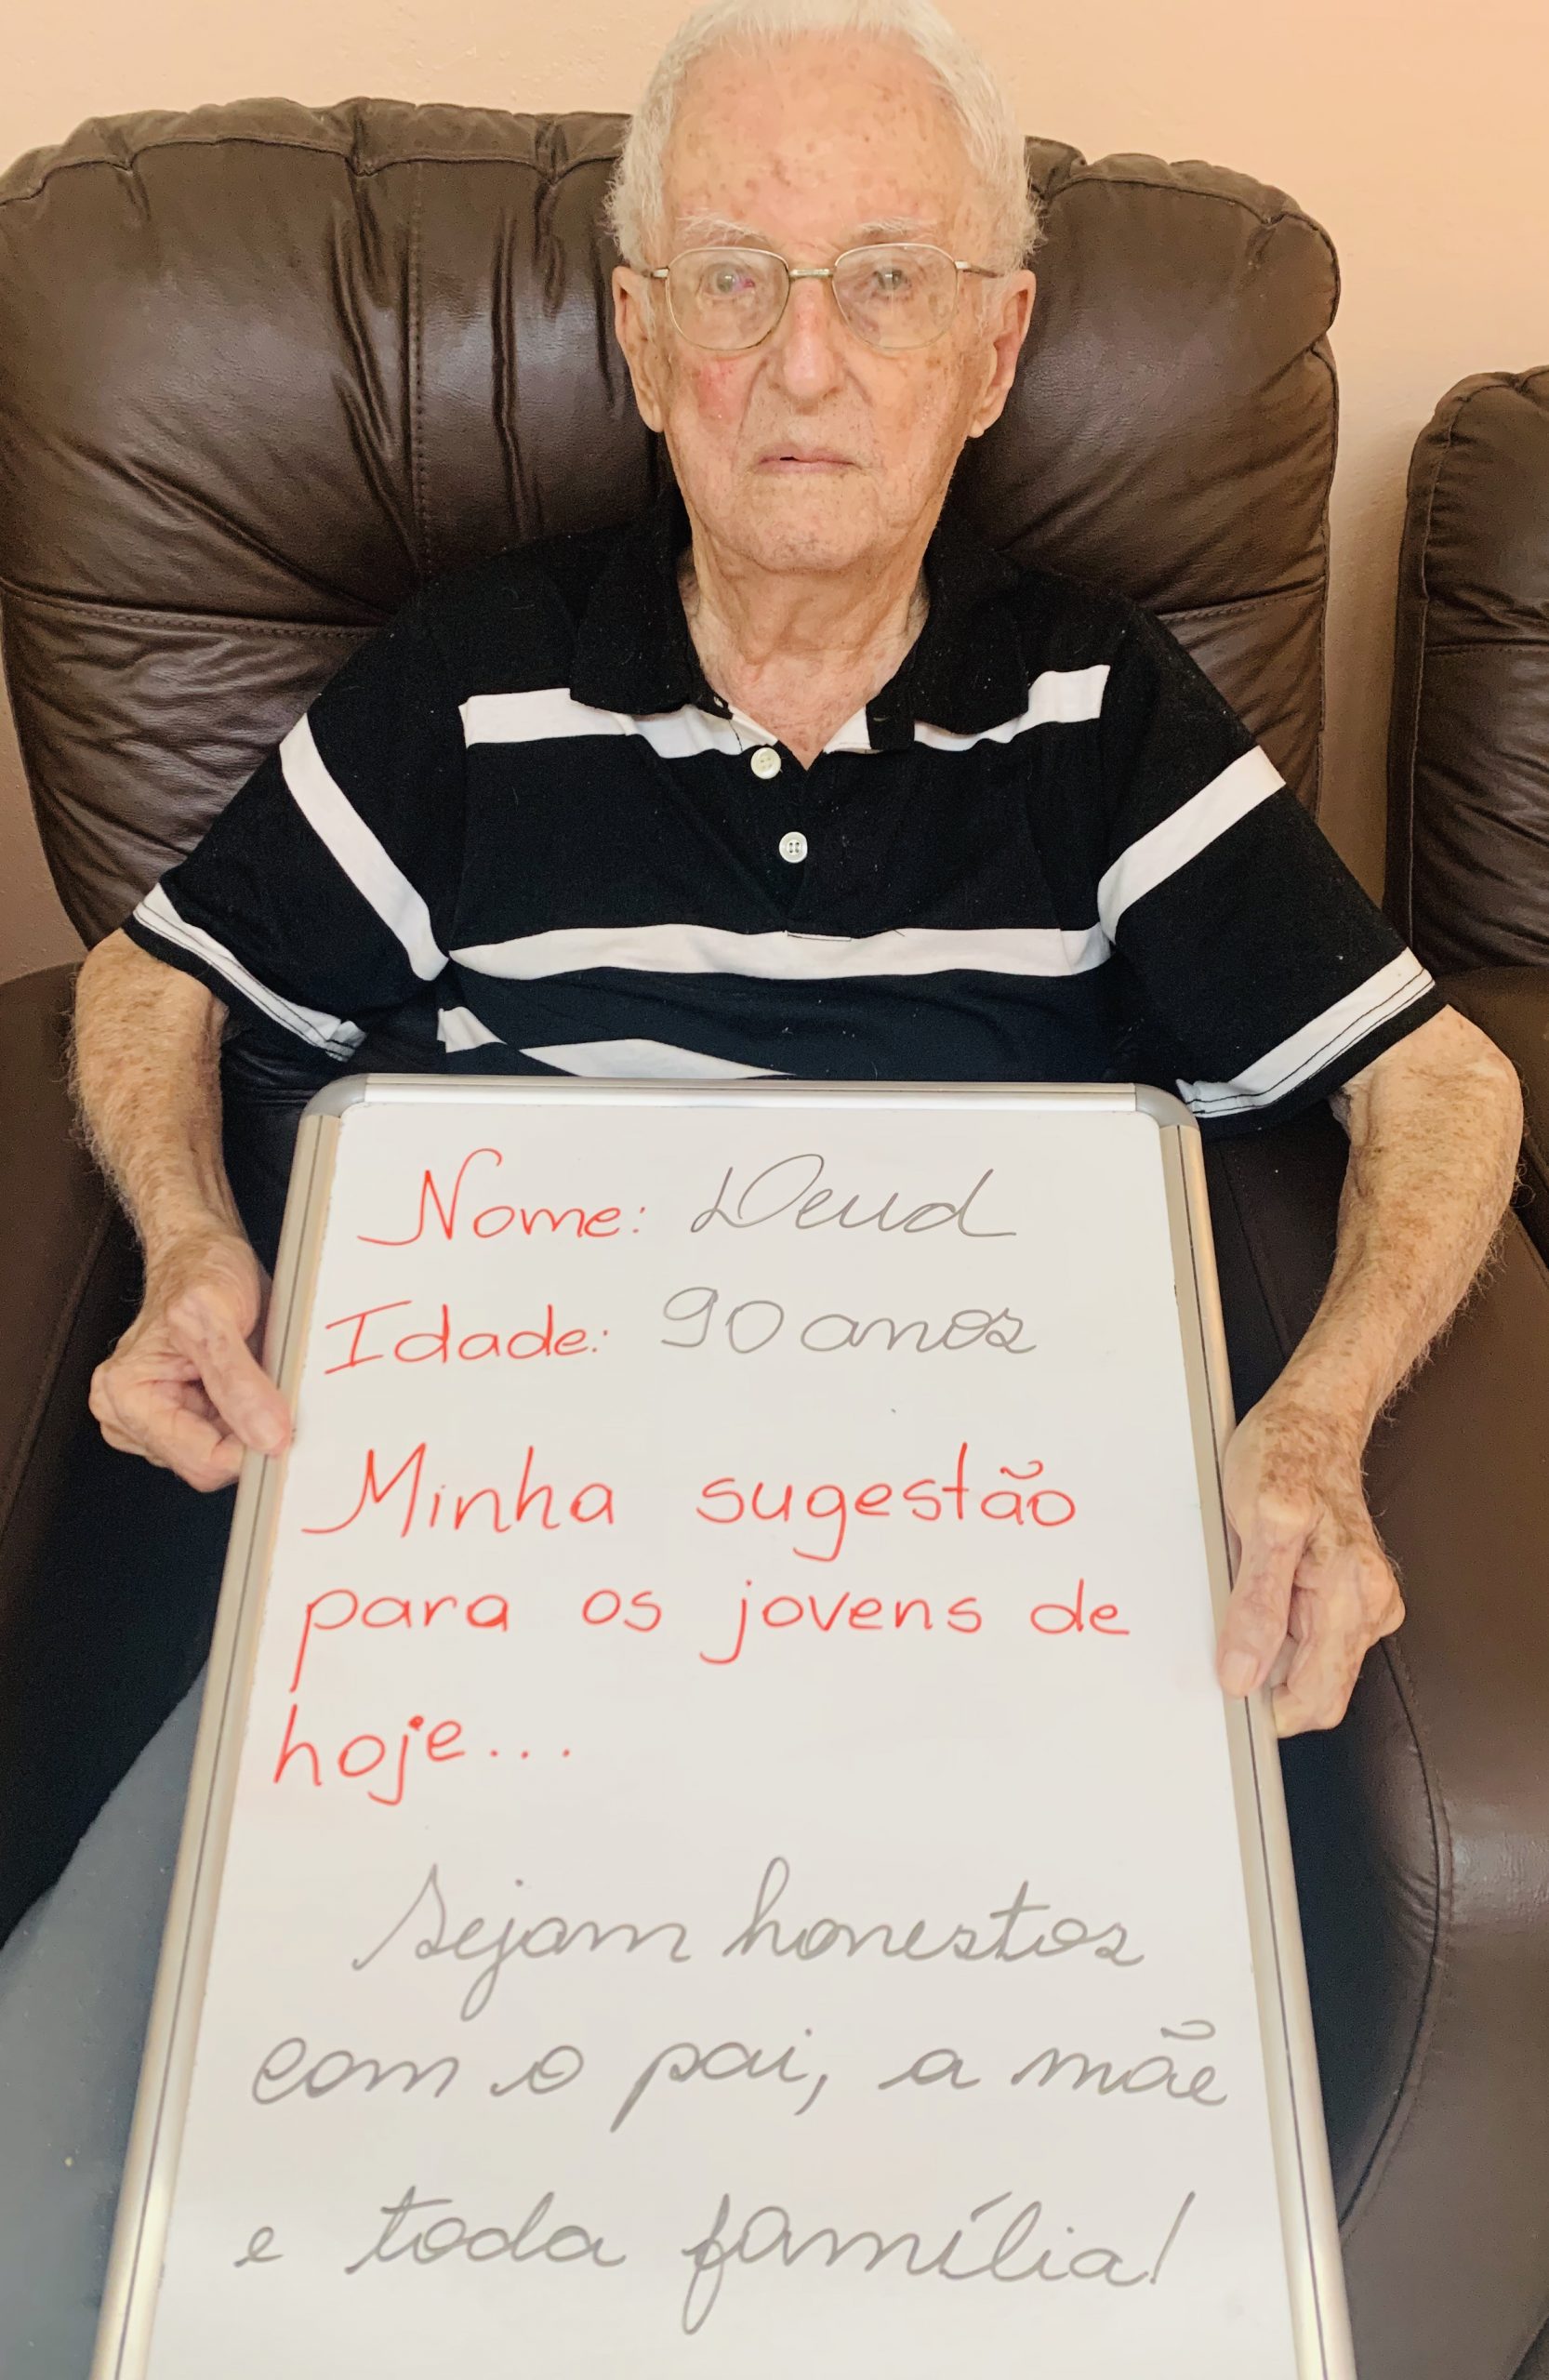 Nome: Deud
Idade: 90 anos
Minha sugestão
para os jovens de
hoje...
Sejam honestos
com o pai, a mãe
e toda família!